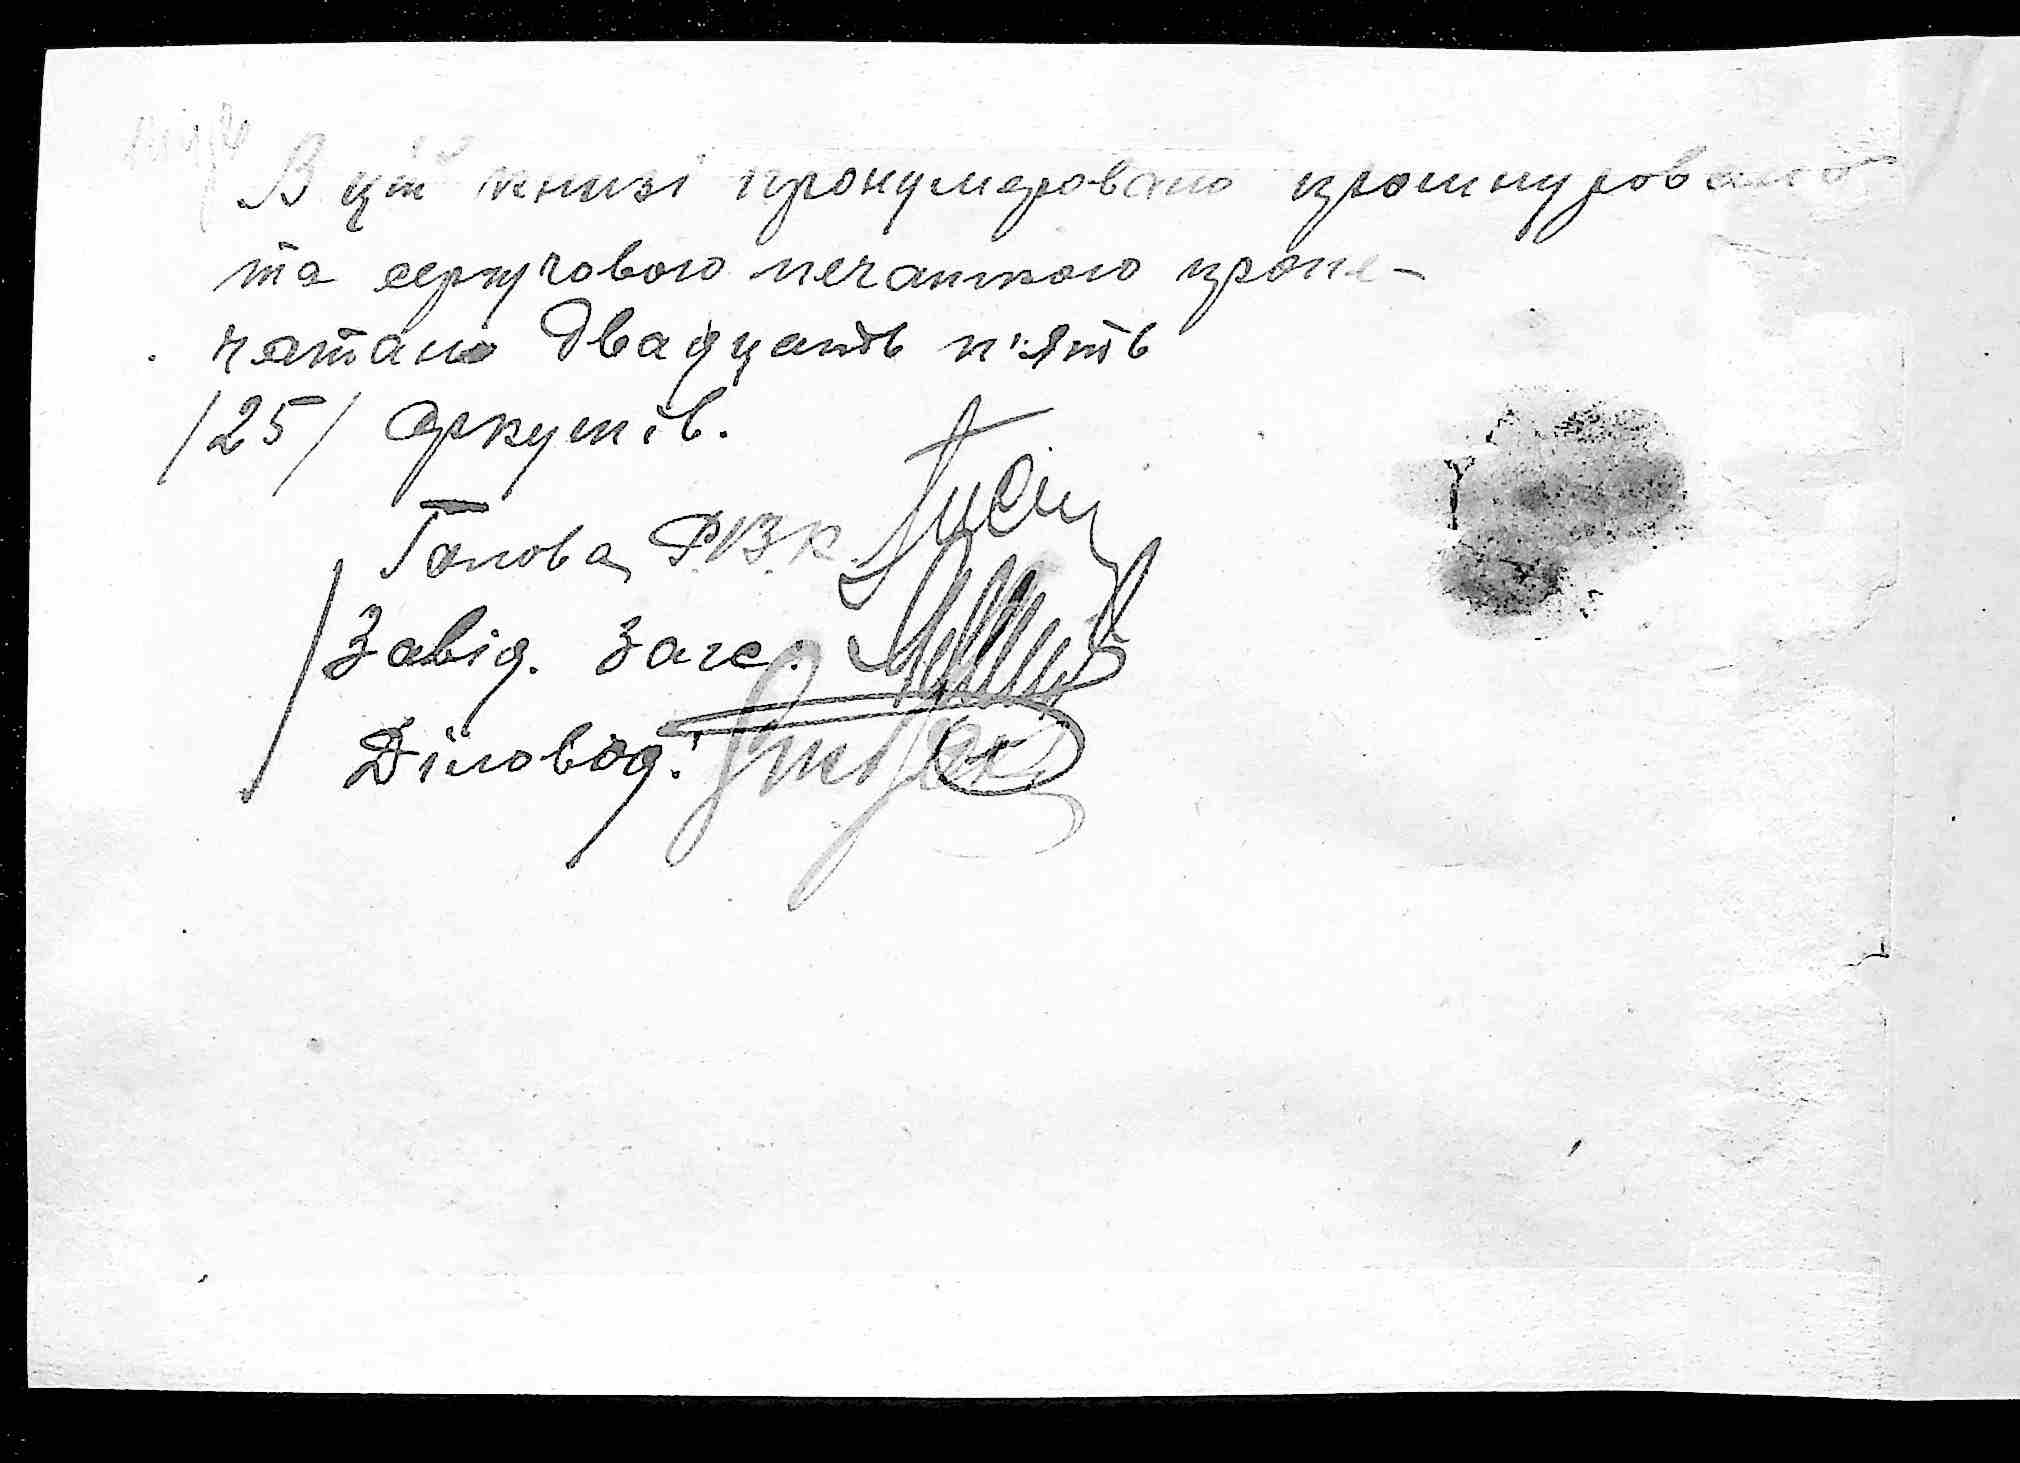 В цій книзі пронумеровано прошнуровано
та сургучовою печаткою пропе-
чатано двадцять п'ять
/25/ аркушів.
Голова РВК
Завід. Загс.
Діловод: